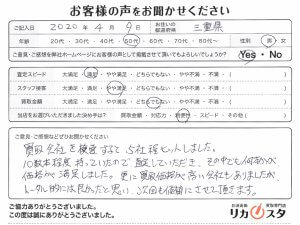 お客様の声をお聞かせください
ご記入日 2020年4月9日 お住いの都道府県 三重県
年齢 20代・30代・40代・50代・60代・70代・80代～ 性別 男・女
ご意見・ご感想を弊社ホームページにお客様の声として掲載させて頂いてもよろしいでしょうか? Yes・No
査定スピード 大満足・満足・やや満足・どちらでもない・やや不満・不満
スタッフ接客 大満足・満足・やや満足・どちらでもない・やや不満・不満
買取金額 大満足・満足・やや満足・どちらでもない・やや不満・不満
当店をお選びいただきました決め手は? 買取金額・対応力・利便性・スピード・その他( )
ご意見・ご感想などぜひお聞かせください
買取会社を検索すると5社程ヒットしました。
10数本程度持っていたので査定していただき、その中でも何本かが
価格が満足しました。更に買取価格が高い会社もありましたが
トータル的には良かったと思い、次回も依頼にさせて頂きます。
ご協力ありがとうございました。
この度は誠にありがとうございました。
お酒買取専門店
リカスタ